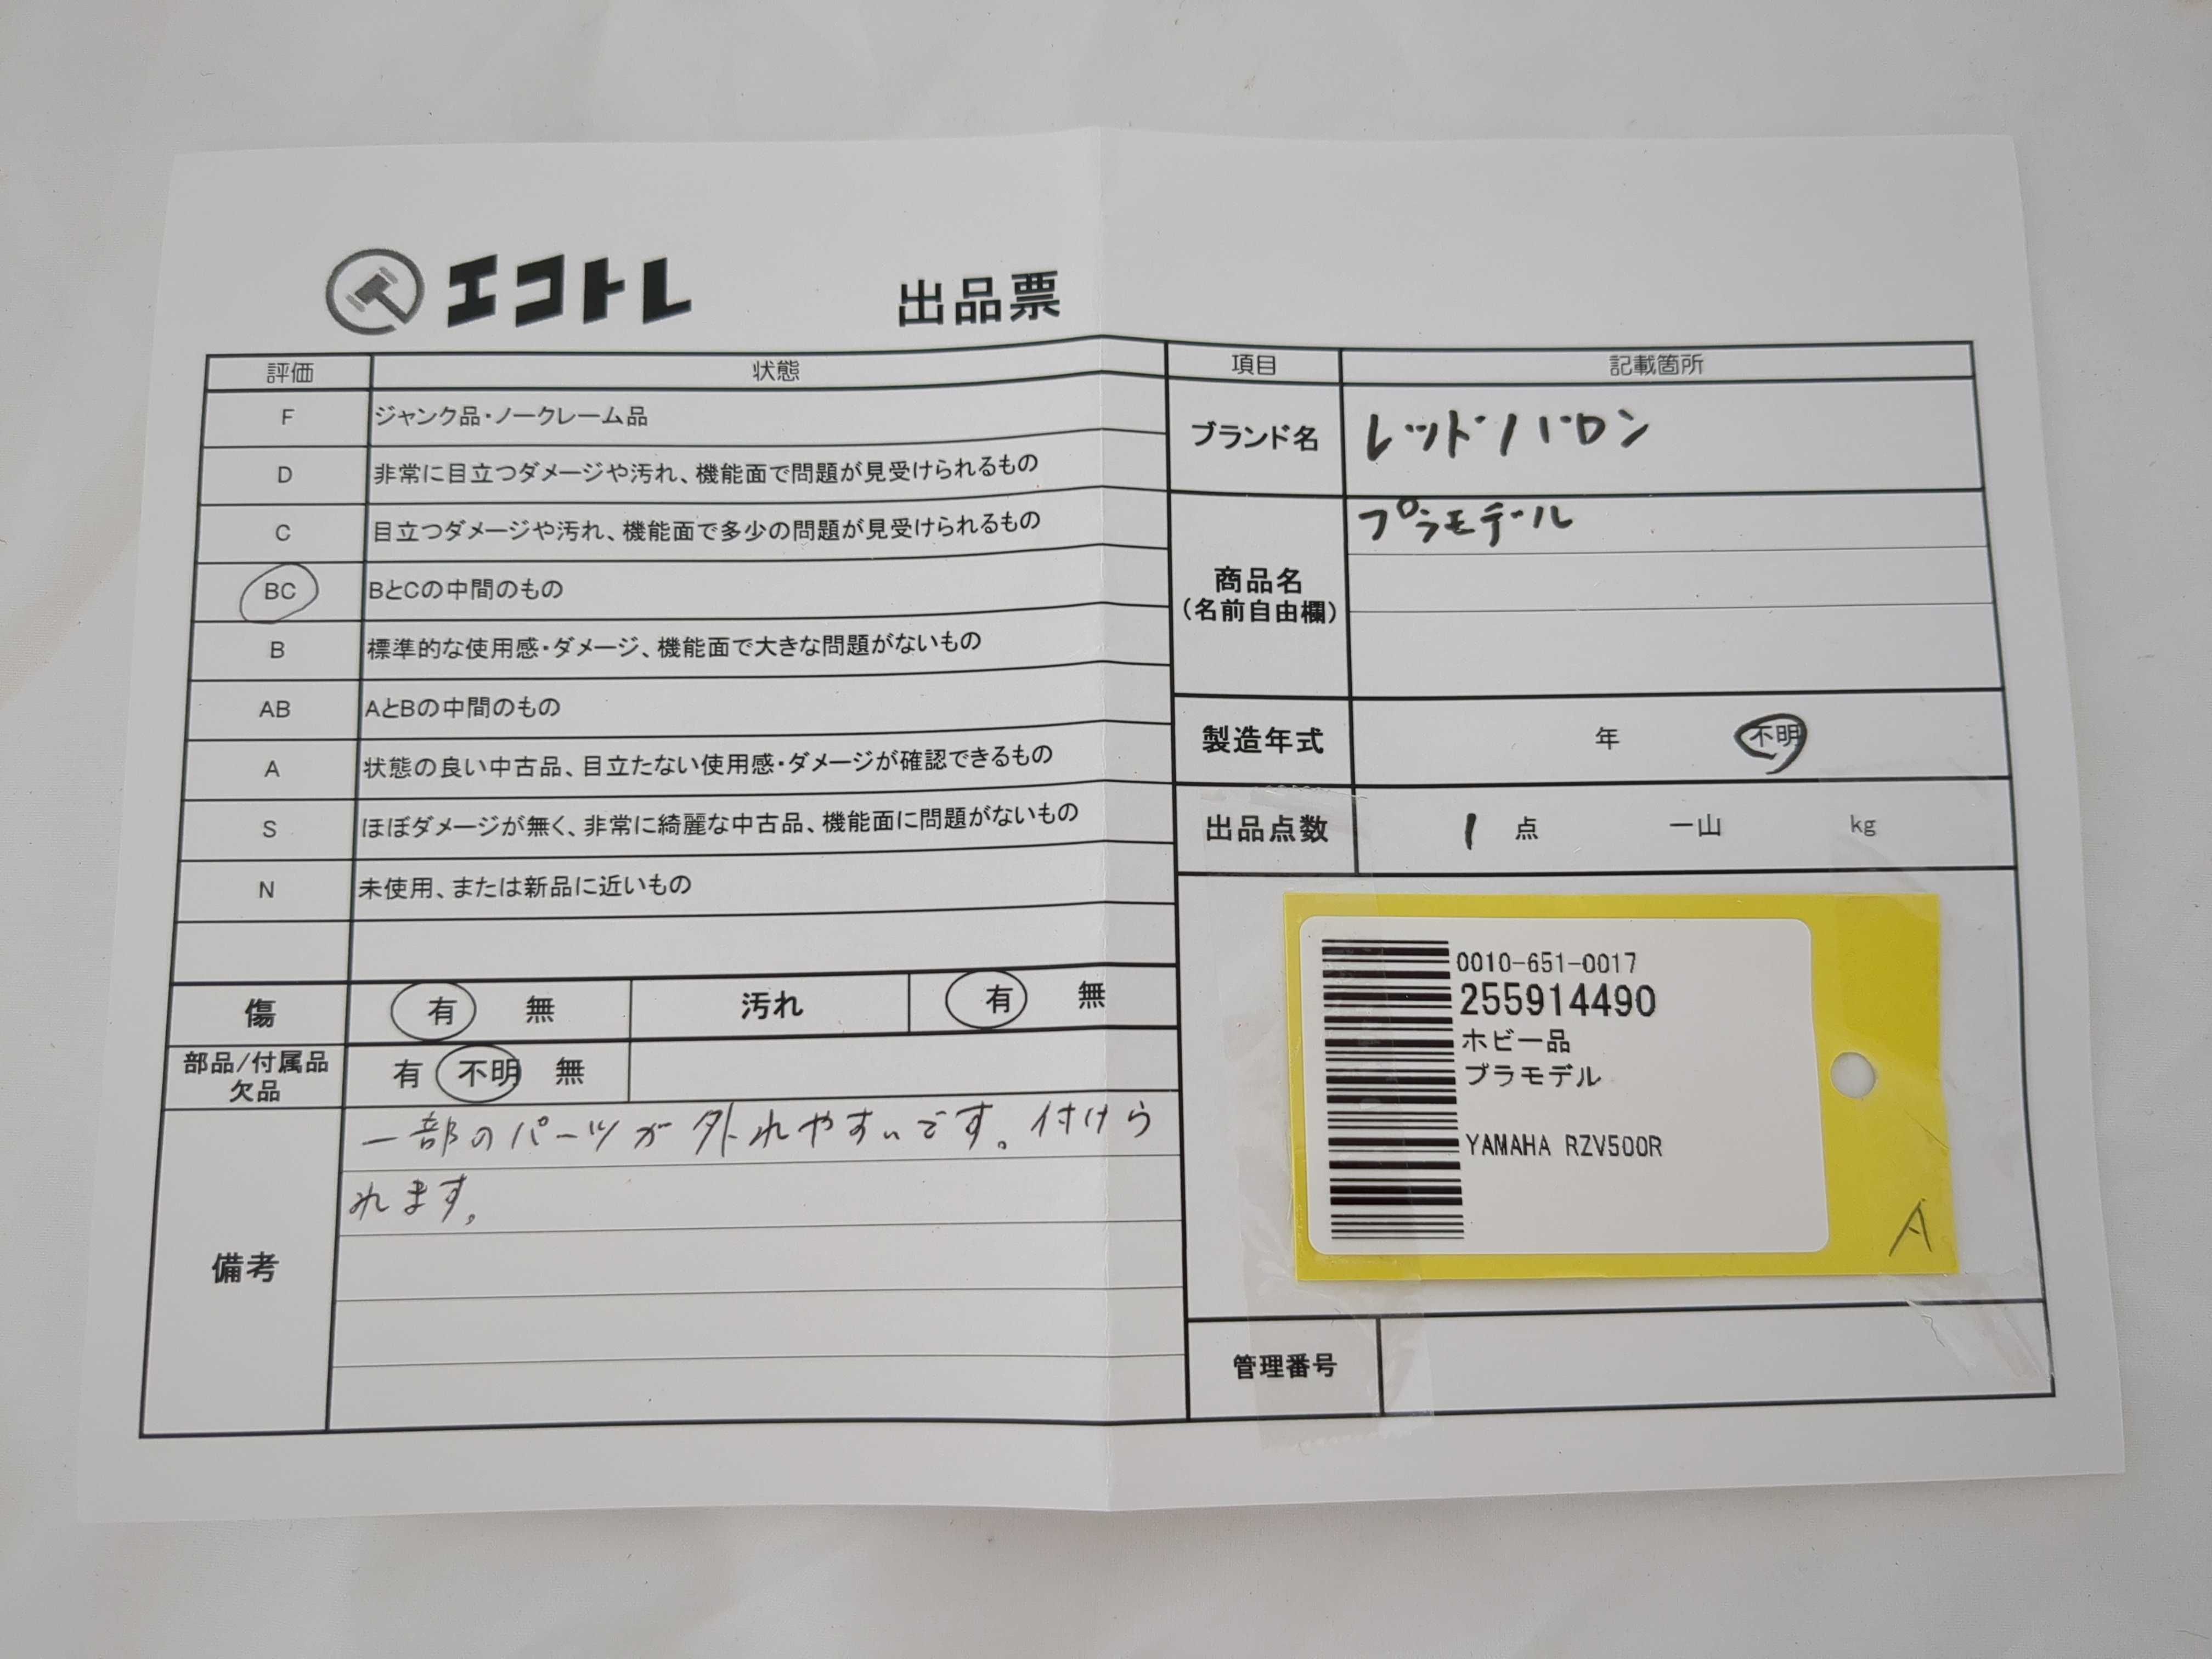 エコトレ 出品票
評価 状態
F ジャンク品・ノークレーム品
D 非常に目立つダメージや汚れ、機能面で問題が見受けられるもの
C 目立つダメージや汚れ、機能面で多少の問題が見受けられるもの
BC BとCの中間のもの
B 標準的な使用感・ダメージ、機能面で大きな問題がないもの
AB AとBの中間のもの
A 状態の良い中古品、目立たない使用感・ダメージが確認できるもの
S ほぼダメージが無く、非常に綺麗な中古品、機能面に問題がないもの
N 未使用、または新品に近いもの
傷 有 無 汚れ 有 無
部品/付属品
欠品
有 不明 無
備考
一部のパーツが外れやすいです。付けら
れます。
項目 記載箇所
ブランド名 レッドバロン
商品名
(名前自由欄)
プラモデール
製造年式 年 不明
出品点数 1 点 一山 kg
0010-651-0017
255914490
ホビー品
プラモデル
YAMAHA RZV500R
A
管理番号